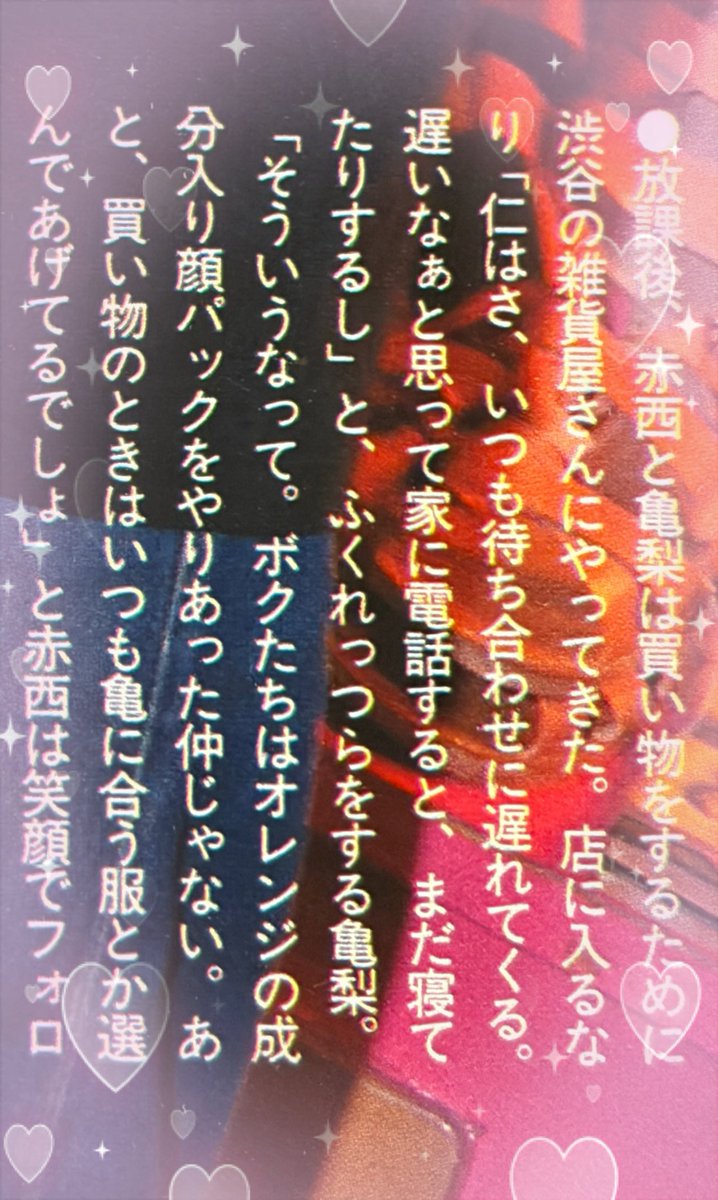 ●放課後、赤西と亀梨は買い物をするために
渋谷の雑貨屋さんにやってきた。店に入るな
り「仁はさ、いつも待ち合わせに遅れてくる。
遅いなぁと思って家に電話すると、まだ寝て
たりするし」と、ふくれっつらをする亀梨。
「そういうなって。ボクたちはオレンジの成
分入り顔パックをやりあった仲じゃない。あ
と、買い物のときはいつも亀に合う服とか選
んであげてるでしょ」と赤西は笑顔でフォロ